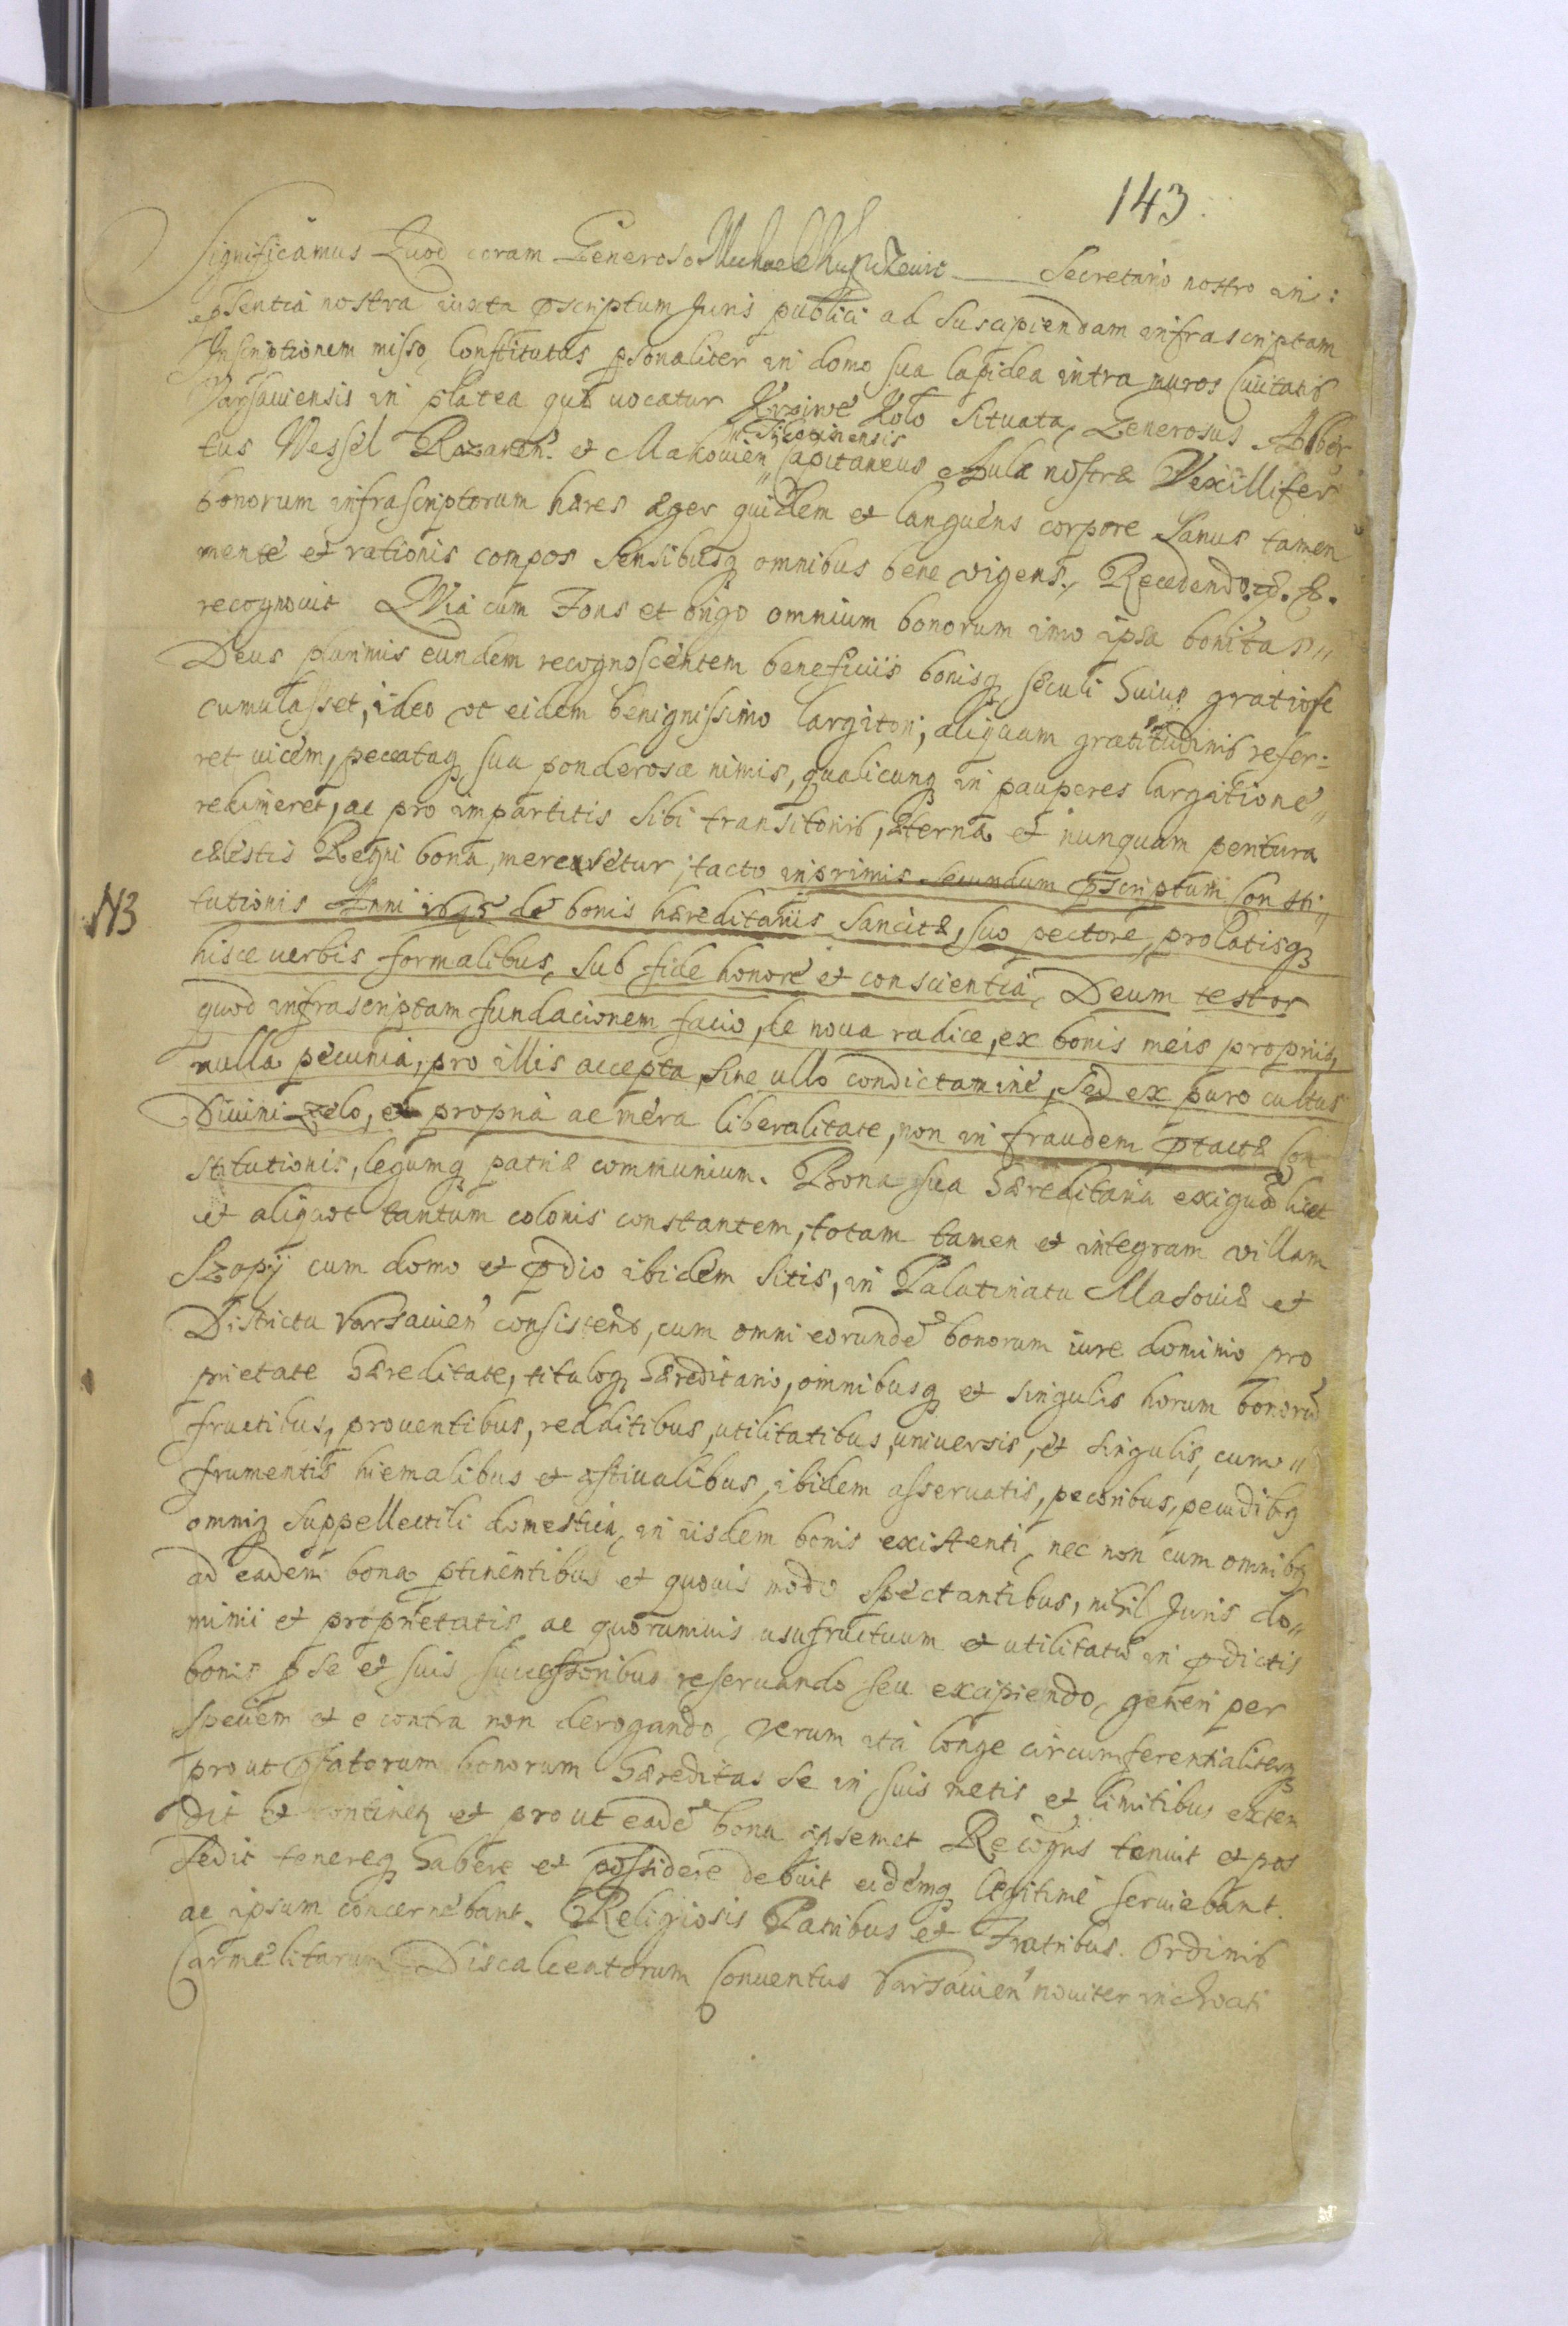 143
Significamus Quod coram Generoso Michaele Secretario nostro in:
psentia nostra iuxta pscriptum Juris publici ad suscipiendam infrascriptam
Inscriptionem misso, Constitutus psonaliter in domo sua lapidea intra muros Ciuitatis
Varsauiensis in platea quæ uocatur Krziwe Kolo situata, Generosus Adalber
Ticocinensis
tus Wessel Rozaneñ. et Makouieñ Capitaneus Aulæ nostræ Vexillifer
bonorum infrascriptorum hæres æger quidem et languens corpore Sanus tamen
mente et rationis compos sensibusq omnibus bene vigens, Recedendo. &. &.
recognouit Quia cum Fons et origo omnium bonorum imo ipsa bonitas"
Deus plurimis eundem recognoscentem beneficiis bonisq sæculi huius gratiose
cumulasset, ideo ut eidem benignissimo largitori, aliquam gratitudinis refer=
ret uicem, peccataq sua ponderosa nimis, qualicunq in pauperes largitione"
redimeret, ac pro impartitis sibi transitoriis, æterna et nunquam peritura
cælestis Regni bona, mercaretur, tacto inprimis secundum pscriptum Consti"
N3
tutionis Anni 1635 de bonis hæreditariis sancitæ, suo pectore, prolatisq
hisce uerbis formalibus, sub fide honore et conscientia, Deum testor
quod infrascriptam fundacionem facio, de noua radice, ex bonis meis propriis,
nulla pecunia, pro illis accepta, sine ullo condictamine, sed ex puro cultus
Diuini zelo, et propria ac mera liberalitate, non in fraudem ptactæ Con
stitutionis, legumq patriæ communium. Bona sua hæreditaria exigua licet
et aliquot tantum colonis constantem, totam tamen et integram villam
Szopij cum domo et pdio ibidem sitis, in Palatinatu Masouiæ et
Districtu Varsauień consistent, cum omni eorundē bonorum iure dominio pro
prietate hæreditate, tituloq hæreditario, omnibusq et singulis horum bonorū
fructibus, prouentibus, redditibus, utilitatibus, uniuersis, et singulis, cum"
frumentis hiemalibus et æstiualibus, ibidem asseruatis, pecoribus, pecudibq
omniq suppellectili domestica, in iisdem bonis existenti, nec non cum omnibq
ad eadem bona ptinentibus et quouis modo spectantibus, nihil Juris do"
minii et proprietatis ac quorumuis usufructuum et utilitatū in pdictis
bonis p se et suis successoribus reseruando seu excipiendo, generi per
speciem et e contra non derogando, Verum ita longe circumferentialiterq
prout pfatorum bonorum hæreditas se in suis metis et limitibus exten
dit et continet et prout eadē bona ipsemet Recogńs tenuit et pos
sedit tenereq habere et possidere debuit eidemq legitime seruiebant
ac ipsum concernebant. Religiosis Patribus et Fratribus Ordinis
Carmelitarum Discalceatorum Conuentus Varsauień nouiter inchoati